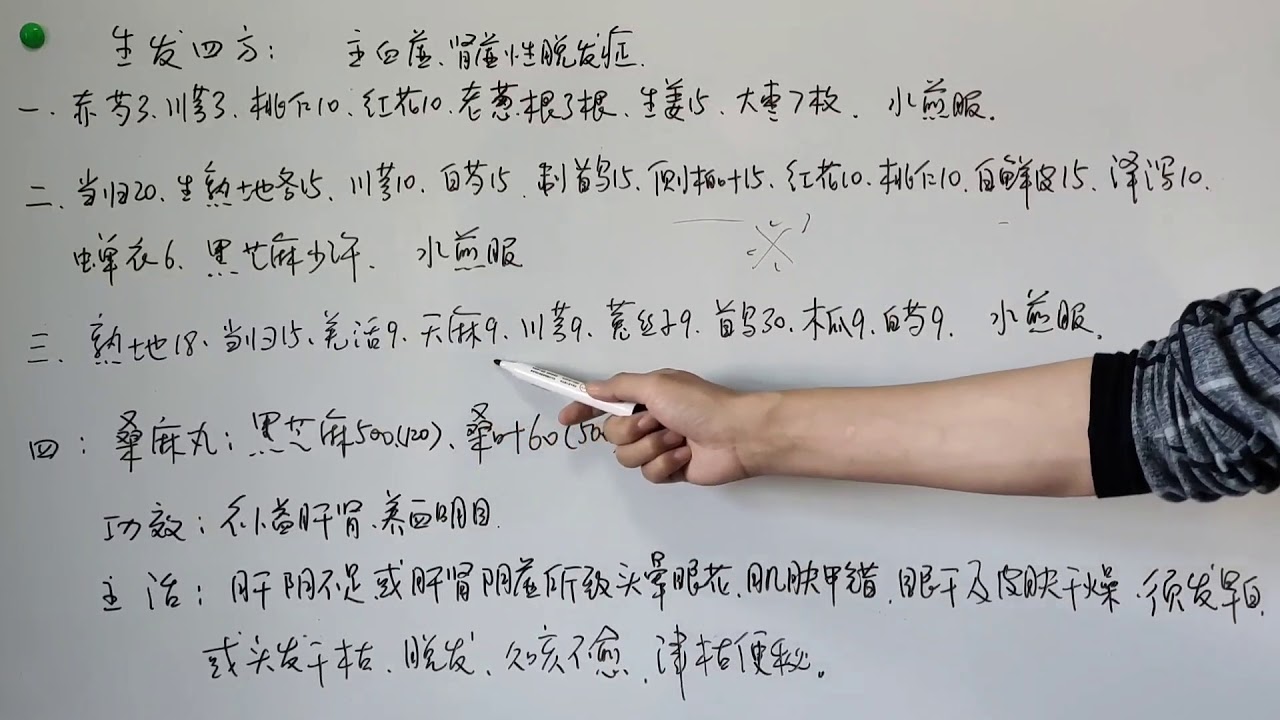 生发四方: 主血虚、肾虚性脱发症.
一. 赤芍3、川芎3、桃仁10、红花10、老葱根3根、生姜15、大枣7枚. 水煎服.
二. 当归20、生熟地各15、川芎10、白芍15、制首乌15、侧柏叶15、红花10、桃仁10、白鲜皮15、泽泻10.
蝉衣6、黑芝麻少许. 水煎服
三. 熟地18、当归15、羌活9、天麻9、川芎9、菟丝子9、首乌30、木瓜9、白芍9. 水煎服.
四: 桑麻丸: 黑芝麻500(120)、桑叶60(50
功效: 补益肝肾、养血明目.
主治: 肝阴不足或肝肾阴虚所致头晕眼花、肌肤甲错、眼干及皮肤干燥、须发早白
或头发干枯、脱发、久咳不愈、津枯便秘。